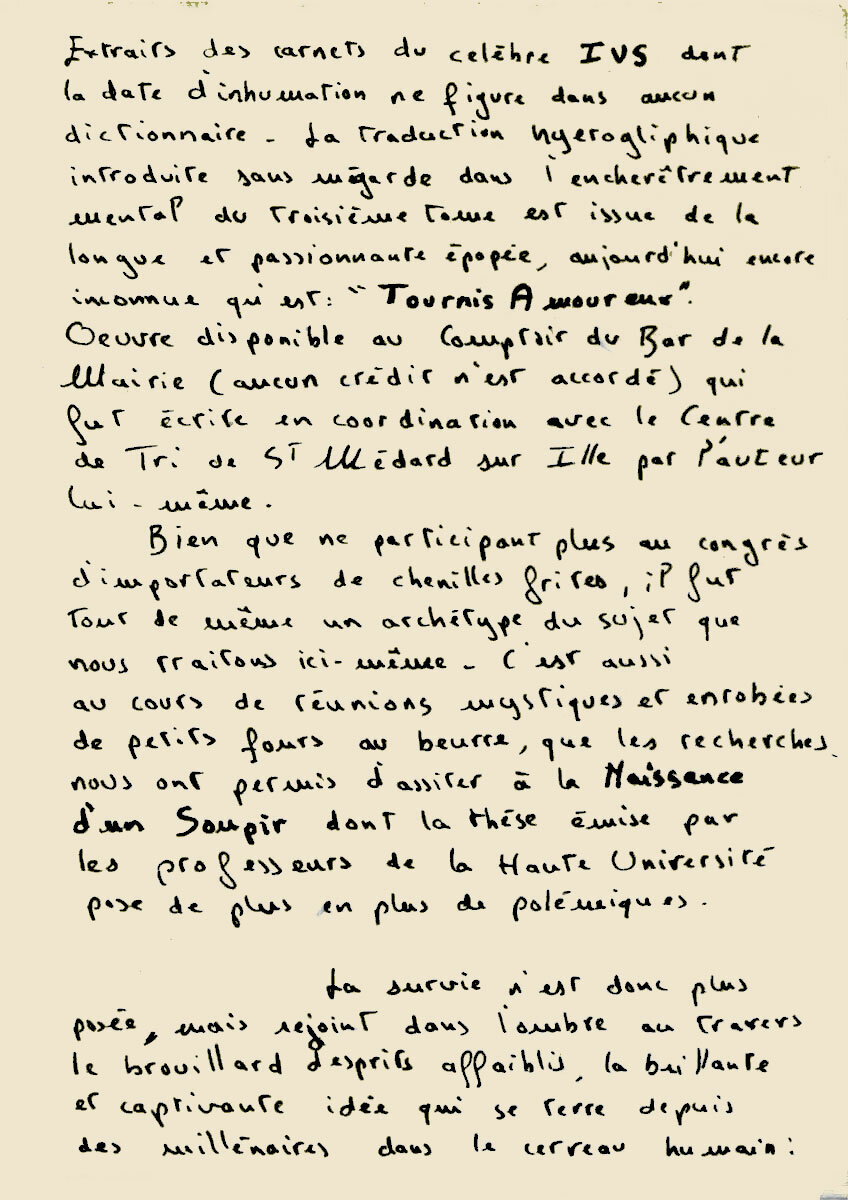 Extraits des carnets du celèbre IVS dont
la date d'inhumation ne figure dans aucun
dictionnaire - La traduction hyerogliphique
introduite sans mégarde dans l'encherêtrement
mental du troisième tome est issue de la
longue et passionnante épopée, aujourd'hui encore
inconnue qu'est : "Tournis Amoureux".
Oeuvre disponible au Comptoir du Bar de la
Mairie (aucun crédit n'est accordé) qui
fut écrite en coordination avec le Centre
de Tri de ST Médard sur Ille par l'auteur
lui-même.
Bien que ne participant plus au congrès
d'importateurs de chenilles frites, il fut
tout de même un archétype du sujet que
nous traitons ici-même - C'est aussi
au cours de réunions mystiques et enrobées
de petits fours au beurre, que les recherches
nous ont permis d'assiter à la Naissance
d'un Soupir dont la thése émise par
les professeurs de la Haute Université
pose de plus en plus de polémiques.
La survie n'est donc plus
posée, mais rejoint dans l'ombre au travers
le brouillard d'esprits affaiblis, la brillante
et captivante idée qui se terre depuis
des millénaires dans le cerveau humain :